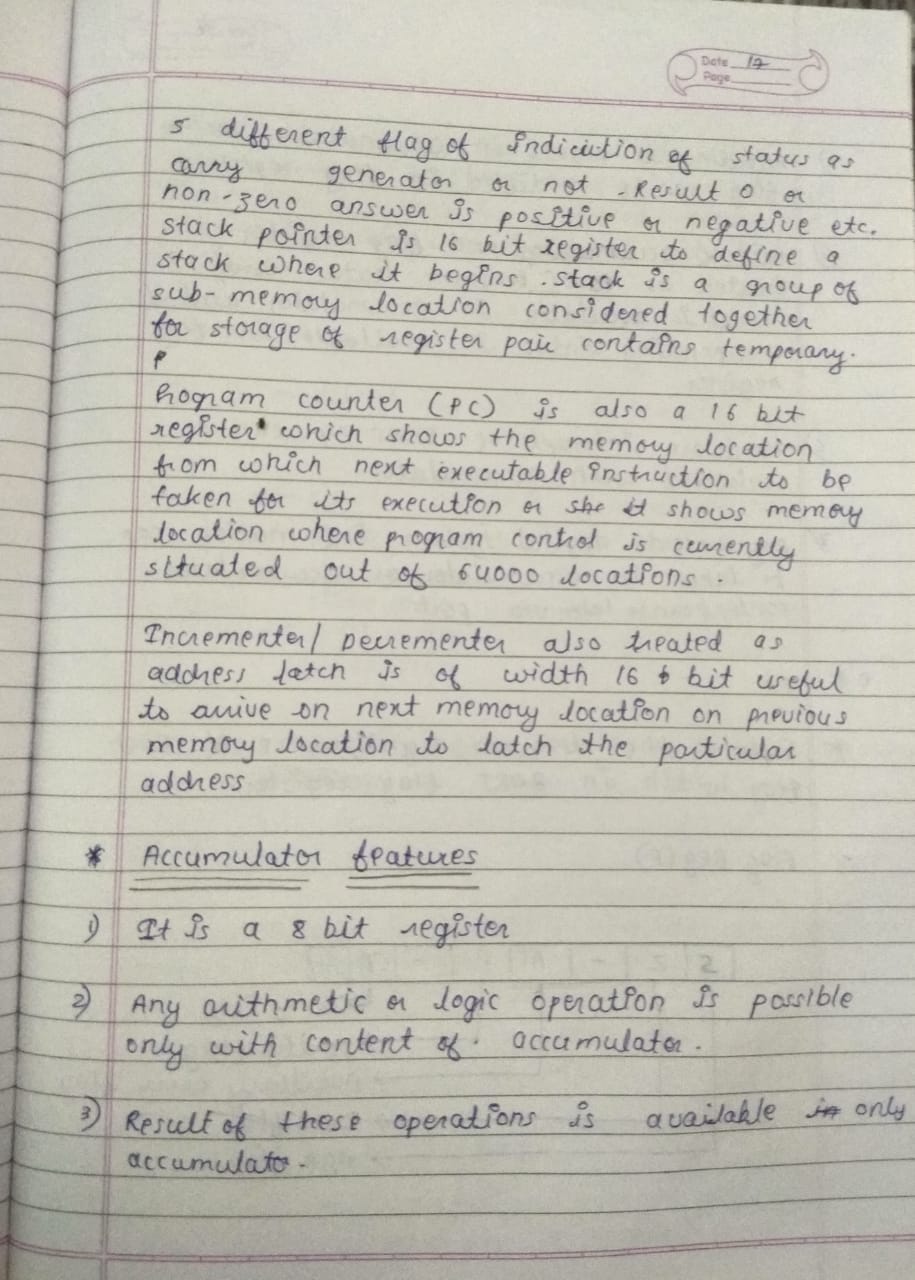 Date 17
Page
5 different flag of indiciution of status as
carry generator or not . Result 0 or
non-zero answer is positive or negative etc.
stack pointer is 16 bit register to define a
stack where it begins . stack is a group of
sub-memory location considered together
for storage of register pair contains temporary.
P
Program counter (PC) is also a 16 bit
register which shows the memory location
from which next executable instruction to be
taken for its execution or she it shows memory
location where program control is currently
situated out of 64000 locations .
Incrementer/ Decrementer also treated as
address latch is of width 16 bit useful
to arrive on next memory location on previous
memory location to latch the particular
address
* Accumulator features
1) It is a 8 bit register
2) Any arithmetic or logic operation is possible
only with content of . accumulator .
3) Result of these operations is available in only
accumulator .